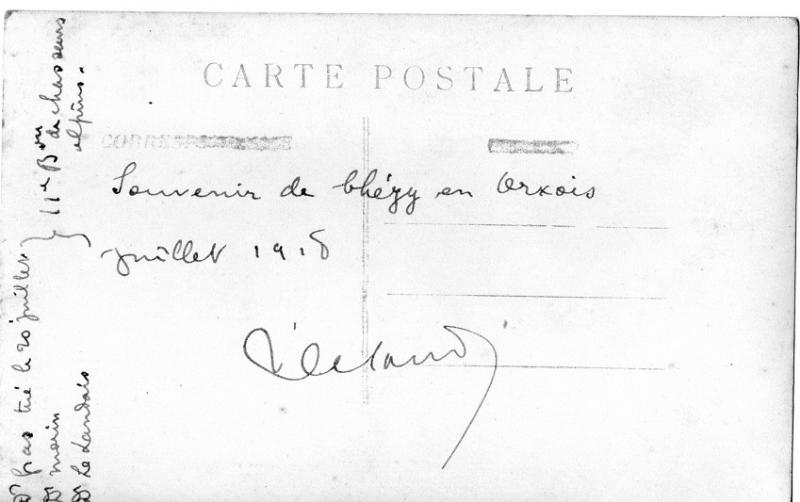 CARTE POSTALE
CORRESPONDANCE
Souvenir de Chézy en Orxois
juillet 1918
Dr pas tué le 20 juillet
Dr morin
Dr Le Landais
11e Bon de chasseurs
alpins.